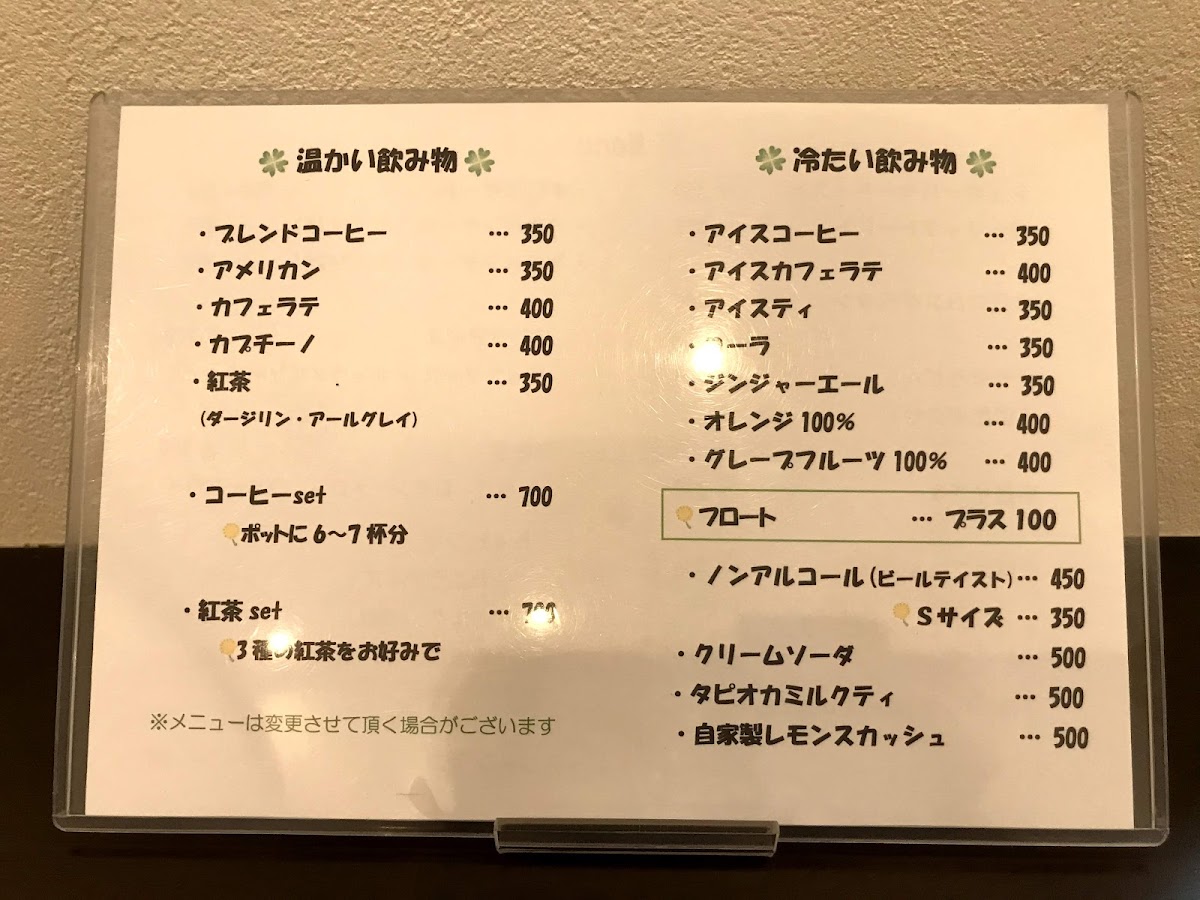 温かい飲み物
・ブレンドコーヒー … 350
・アメリカン … 350
・カフェラテ … 400
・カプチーノ … 400
・紅茶 … 350
(ダージリン・アールグレイ)
・コーヒーset … 700
ポットに6～7杯分
・紅茶set … 700
3種の紅茶をお好みで
※メニューは変更させて頂く場合がございます
冷たい飲み物
・アイスコーヒー … 350
・アイスカフェラテ … 400
・アイスティ … 350
・コーラ … 350
・ジンジャーエール … 350
・オレンジ100% … 400
・グレープフルーツ100% … 400
フロート … プラス100
・ノンアルコール(ビールテイスト)… 450
Sサイズ … 350
・クリームソーダ … 500
・タピオカミルクティ … 500
・自家製レモンスカッシュ … 500